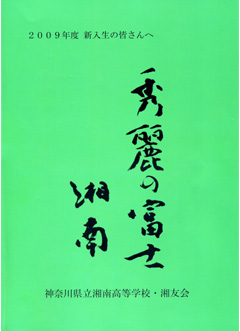 ２００９年度 新入生の皆さんへ
秀麗の富士
湘南
神奈川県立湘南高等学校・湘友会